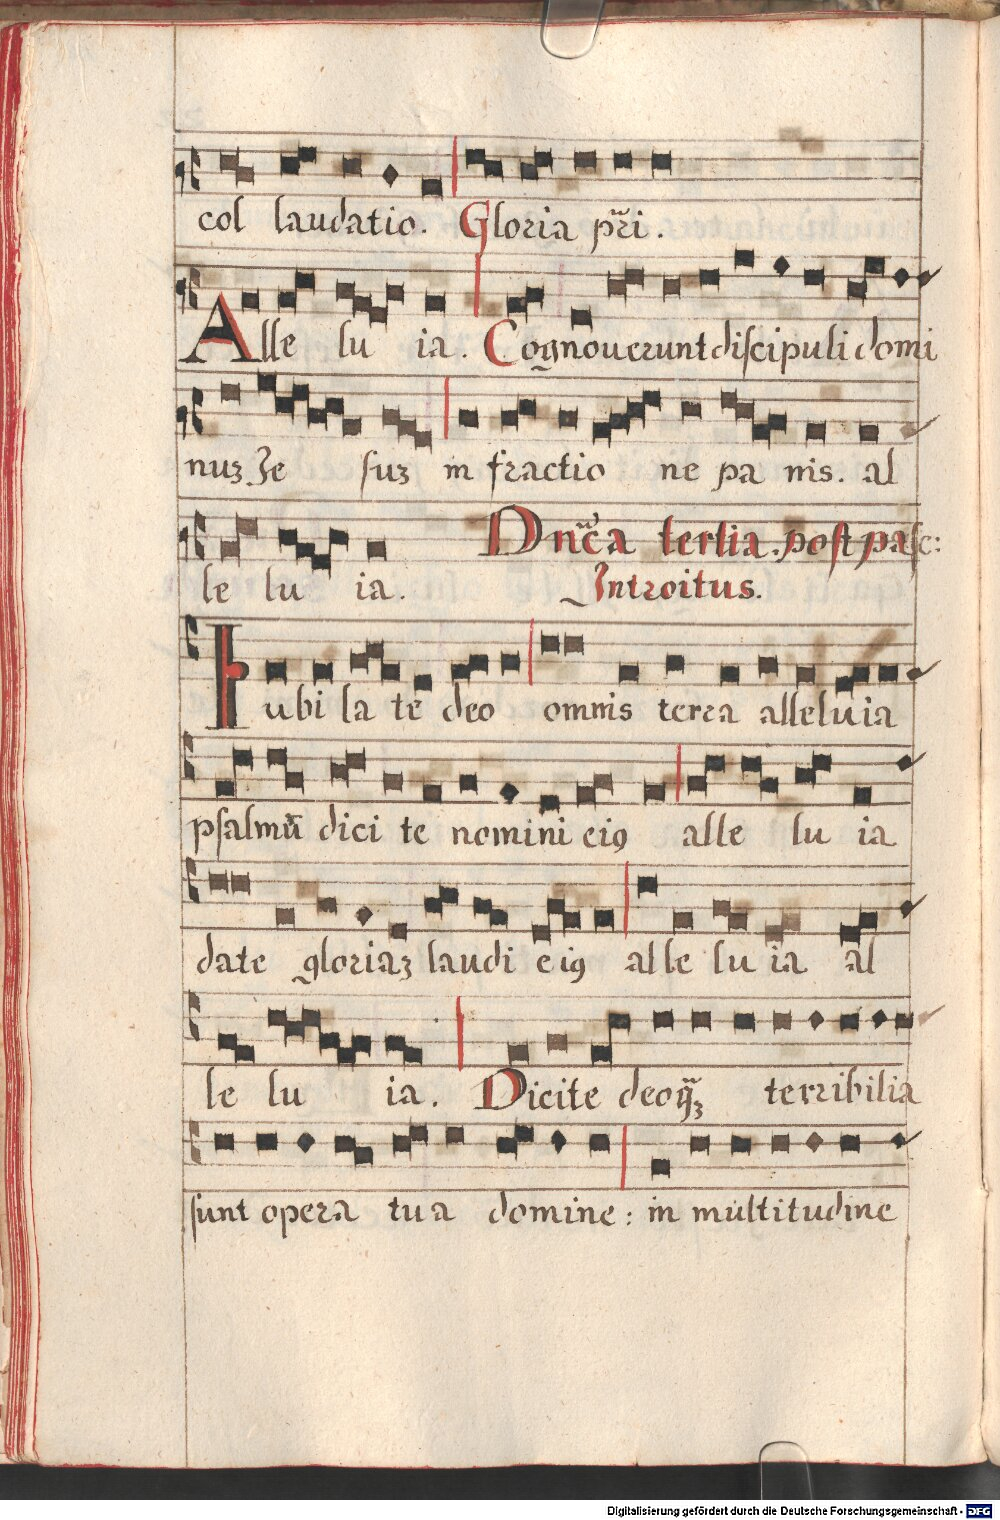 col laudatio. Gloria pr̃i.
Alle lu ia. Cognouerunt discipuli domi
nuʒ Je suʒ in fractio ne pa nis. al
le lu ia. Dnĩca tertia. post pasc:
Introitus.
Iubi la te deo omnis terra alleluia
psalmũ dici te nomini eiꝯ alle lu ia
date gloriaʒ laudi eiꝯ alle lu ia al
le lu ia. Dicite deo q̃ʒ terribilia
sunt opera tua domine: in multitudine
Digitalisierung gefördert durch die Deutsche Forschungsgemeinschaft - DFG